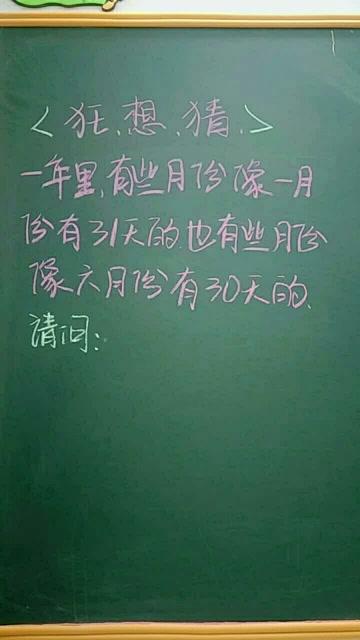 <狂、想、猜、>
一年里,有些月份像一月
份有31天的.也有些月份
像六月份有30天的.
请问: